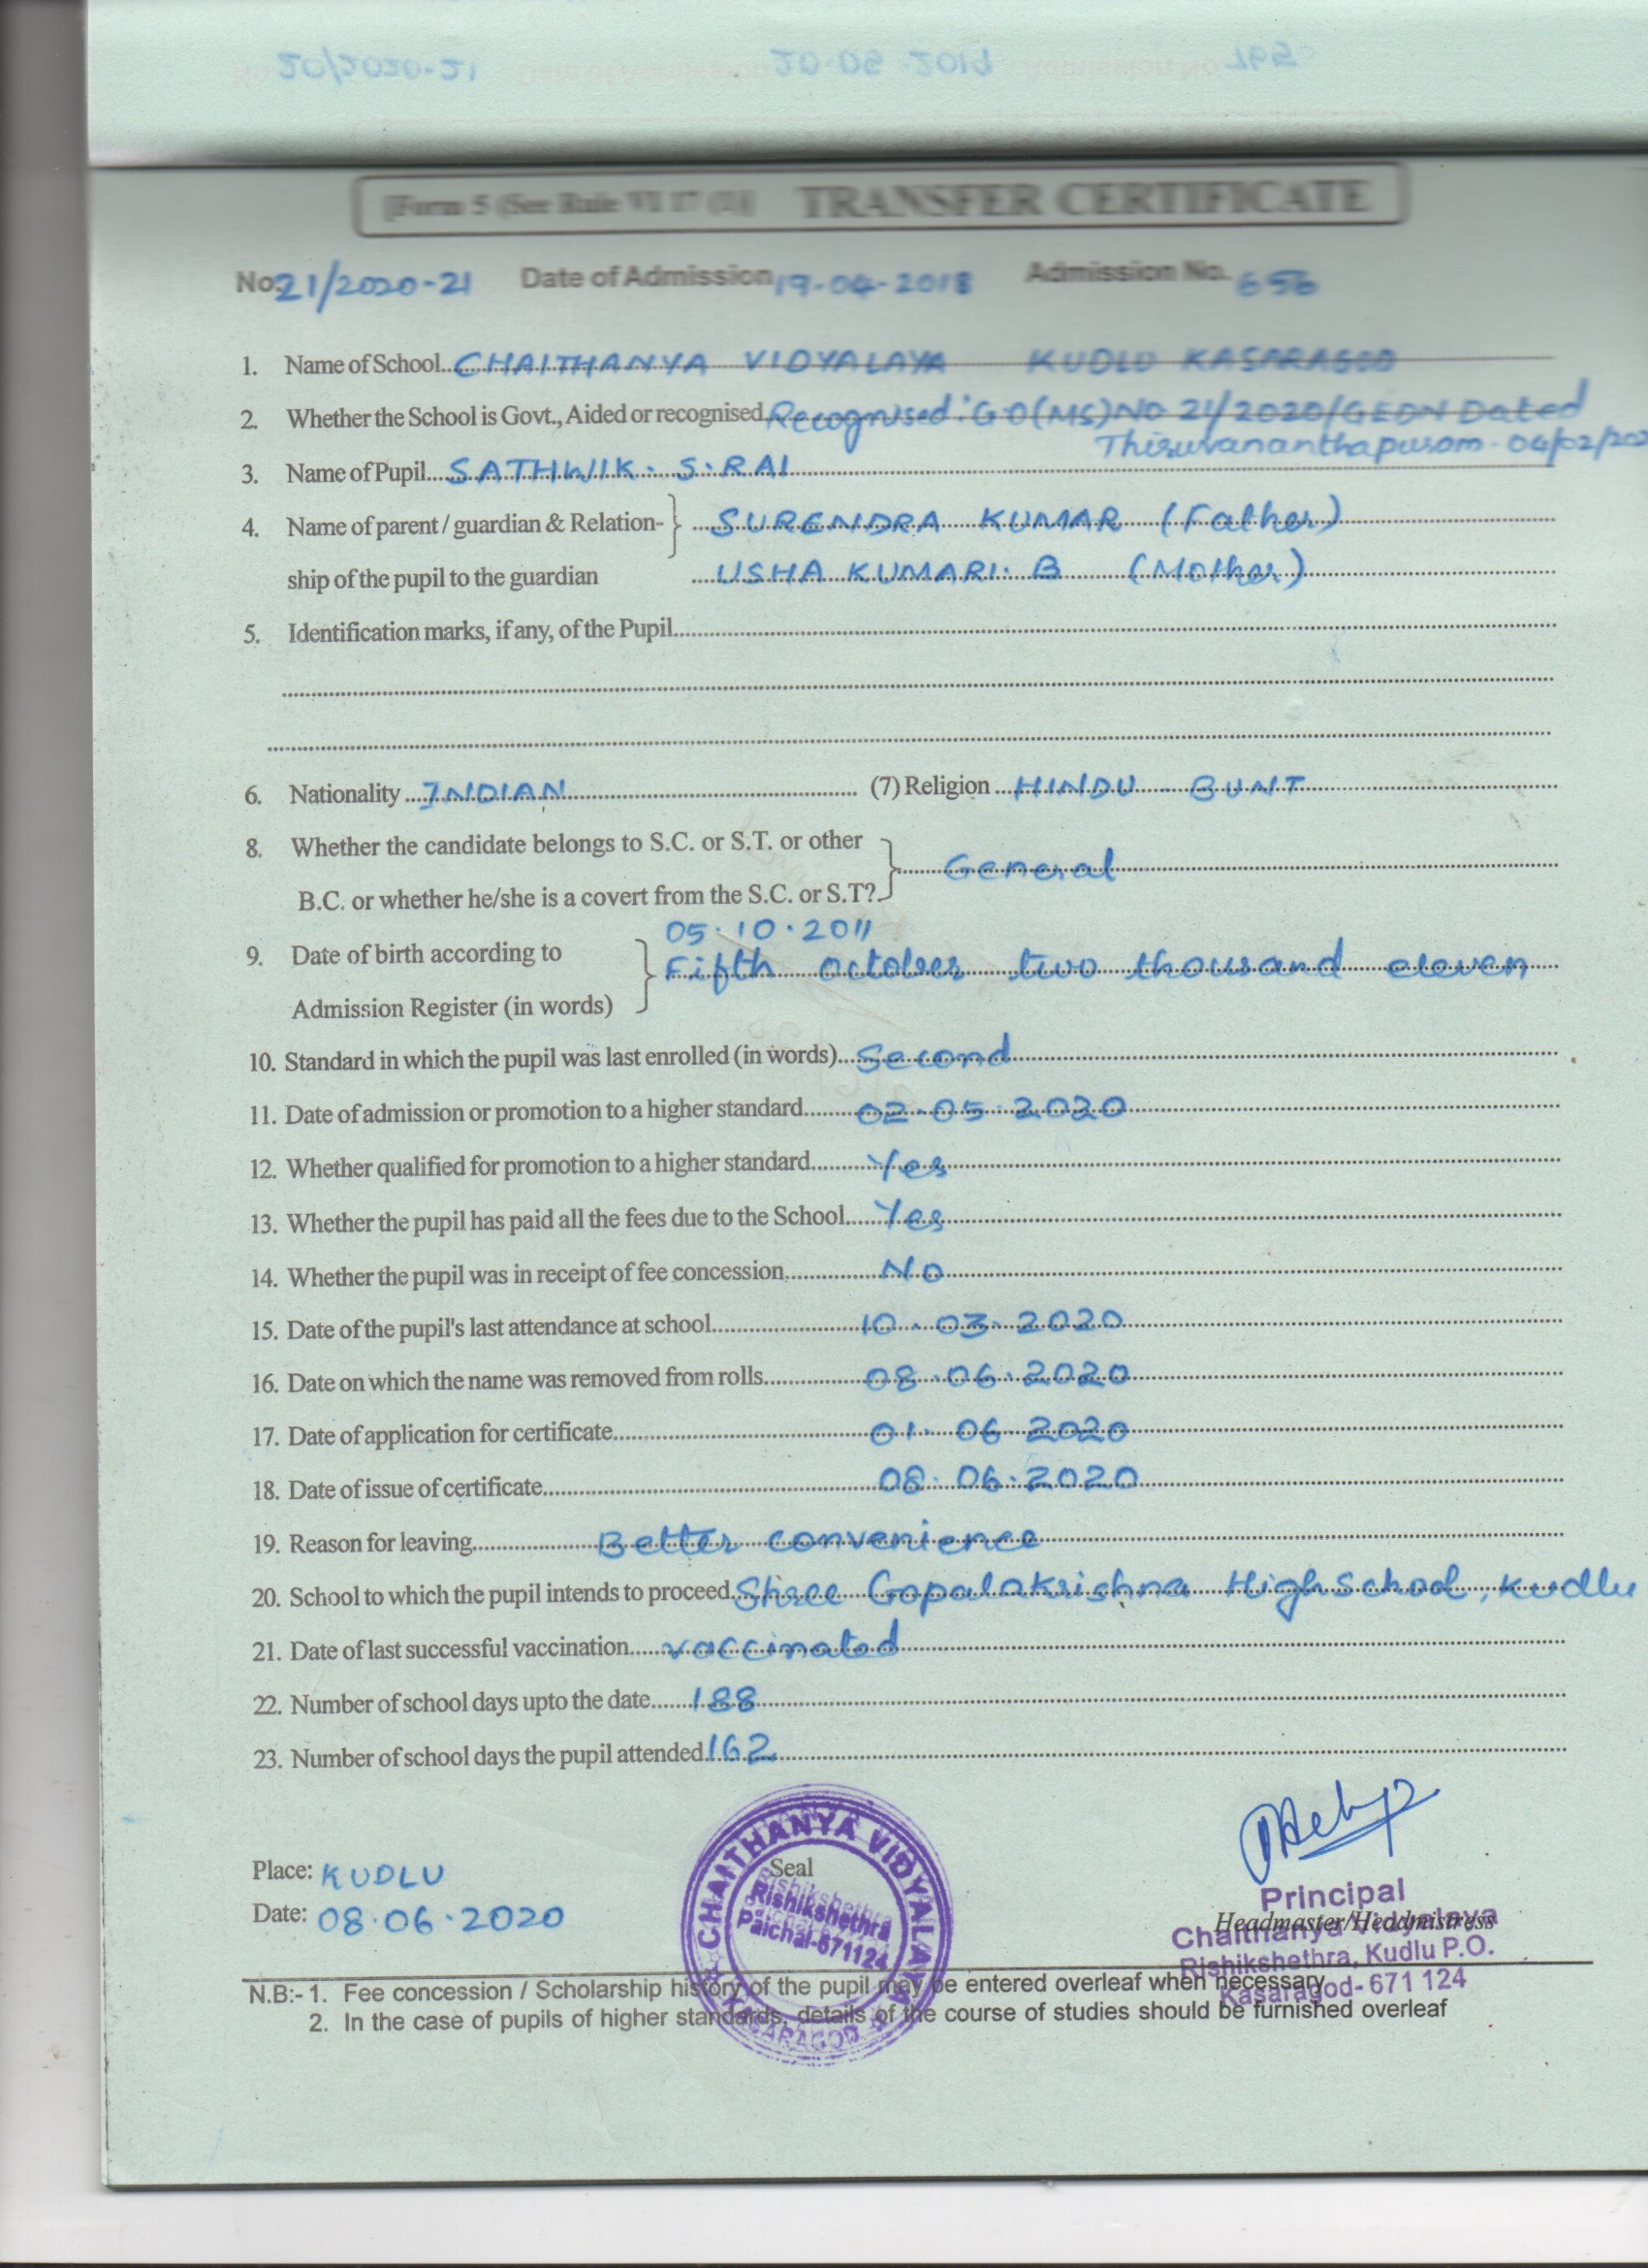 [Form 5 (See Rule VI 17 (1)] TRANSFER CERTIFICATE
No: 21/2020-21 Date of Admission 19-04-2018 Admission No. 656
1. Name of School CHAITHANYA VIDYALAYA KUDLU KASARAGOD
2. Whether the School is Govt., Aided or recognised Recognised: GO(MS)NO 21/2020/GEDN Dated
Thiruvananthapuram - 04/02/202
3. Name of Pupil SATHWIK. S. RAI
4. Name of parent / guardian & Relation- } SURENDRA KUMAR (Father)
ship of the pupil to the guardian USHA KUMARI. B (Mother)
5. Identification marks, if any, of the Pupil
6. Nationality INDIAN (7) Religion HINDU BUNT
8. Whether the candidate belongs to S.C. or S.T. or other
B.C. or whether he/she is a covert from the S.C. or S.T? } General
05.10.2011
9. Date of birth according to } Fifth october two thousand eleven
Admission Register (in words)
10. Standard in which the pupil was last enrolled (in words) Second
11. Date of admission or promotion to a higher standard 02-05-2020
12. Whether qualified for promotion to a higher standard Yes
13. Whether the pupil has paid all the fees due to the School Yes
14. Whether the pupil was in receipt of fee concession No
15. Date of the pupil's last attendance at school 10.03.2020
16. Date on which the name was removed from rolls 08.06.2020
17. Date of application for certificate 01.06.2020
18. Date of issue of certificate 08.06.2020
19. Reason for leaving Better convenience
20. School to which the pupil intends to proceed Shree Gopalakrishna High School, Kudlu
21. Date of last successful vaccination vaccinated
22. Number of school days upto the date 188
23. Number of school days the pupil attended 162
Place: KUDLU
Date: 08.06.2020
Seal
CHAITHANYA VIDYALAYA
Rishikshethra
Paichal-671124
KASARAGOD
Principal
Headmaster/Headmistress
Chaithanya Vidyalaya
Rishikshethra, Kudlu P.O.
Kasaragod- 671 124
N.B:- 1. Fee concession / Scholarship history of the pupil may be entered overleaf when necessary
2. In the case of pupils of higher standards, details of the course of studies should be furnished overleaf